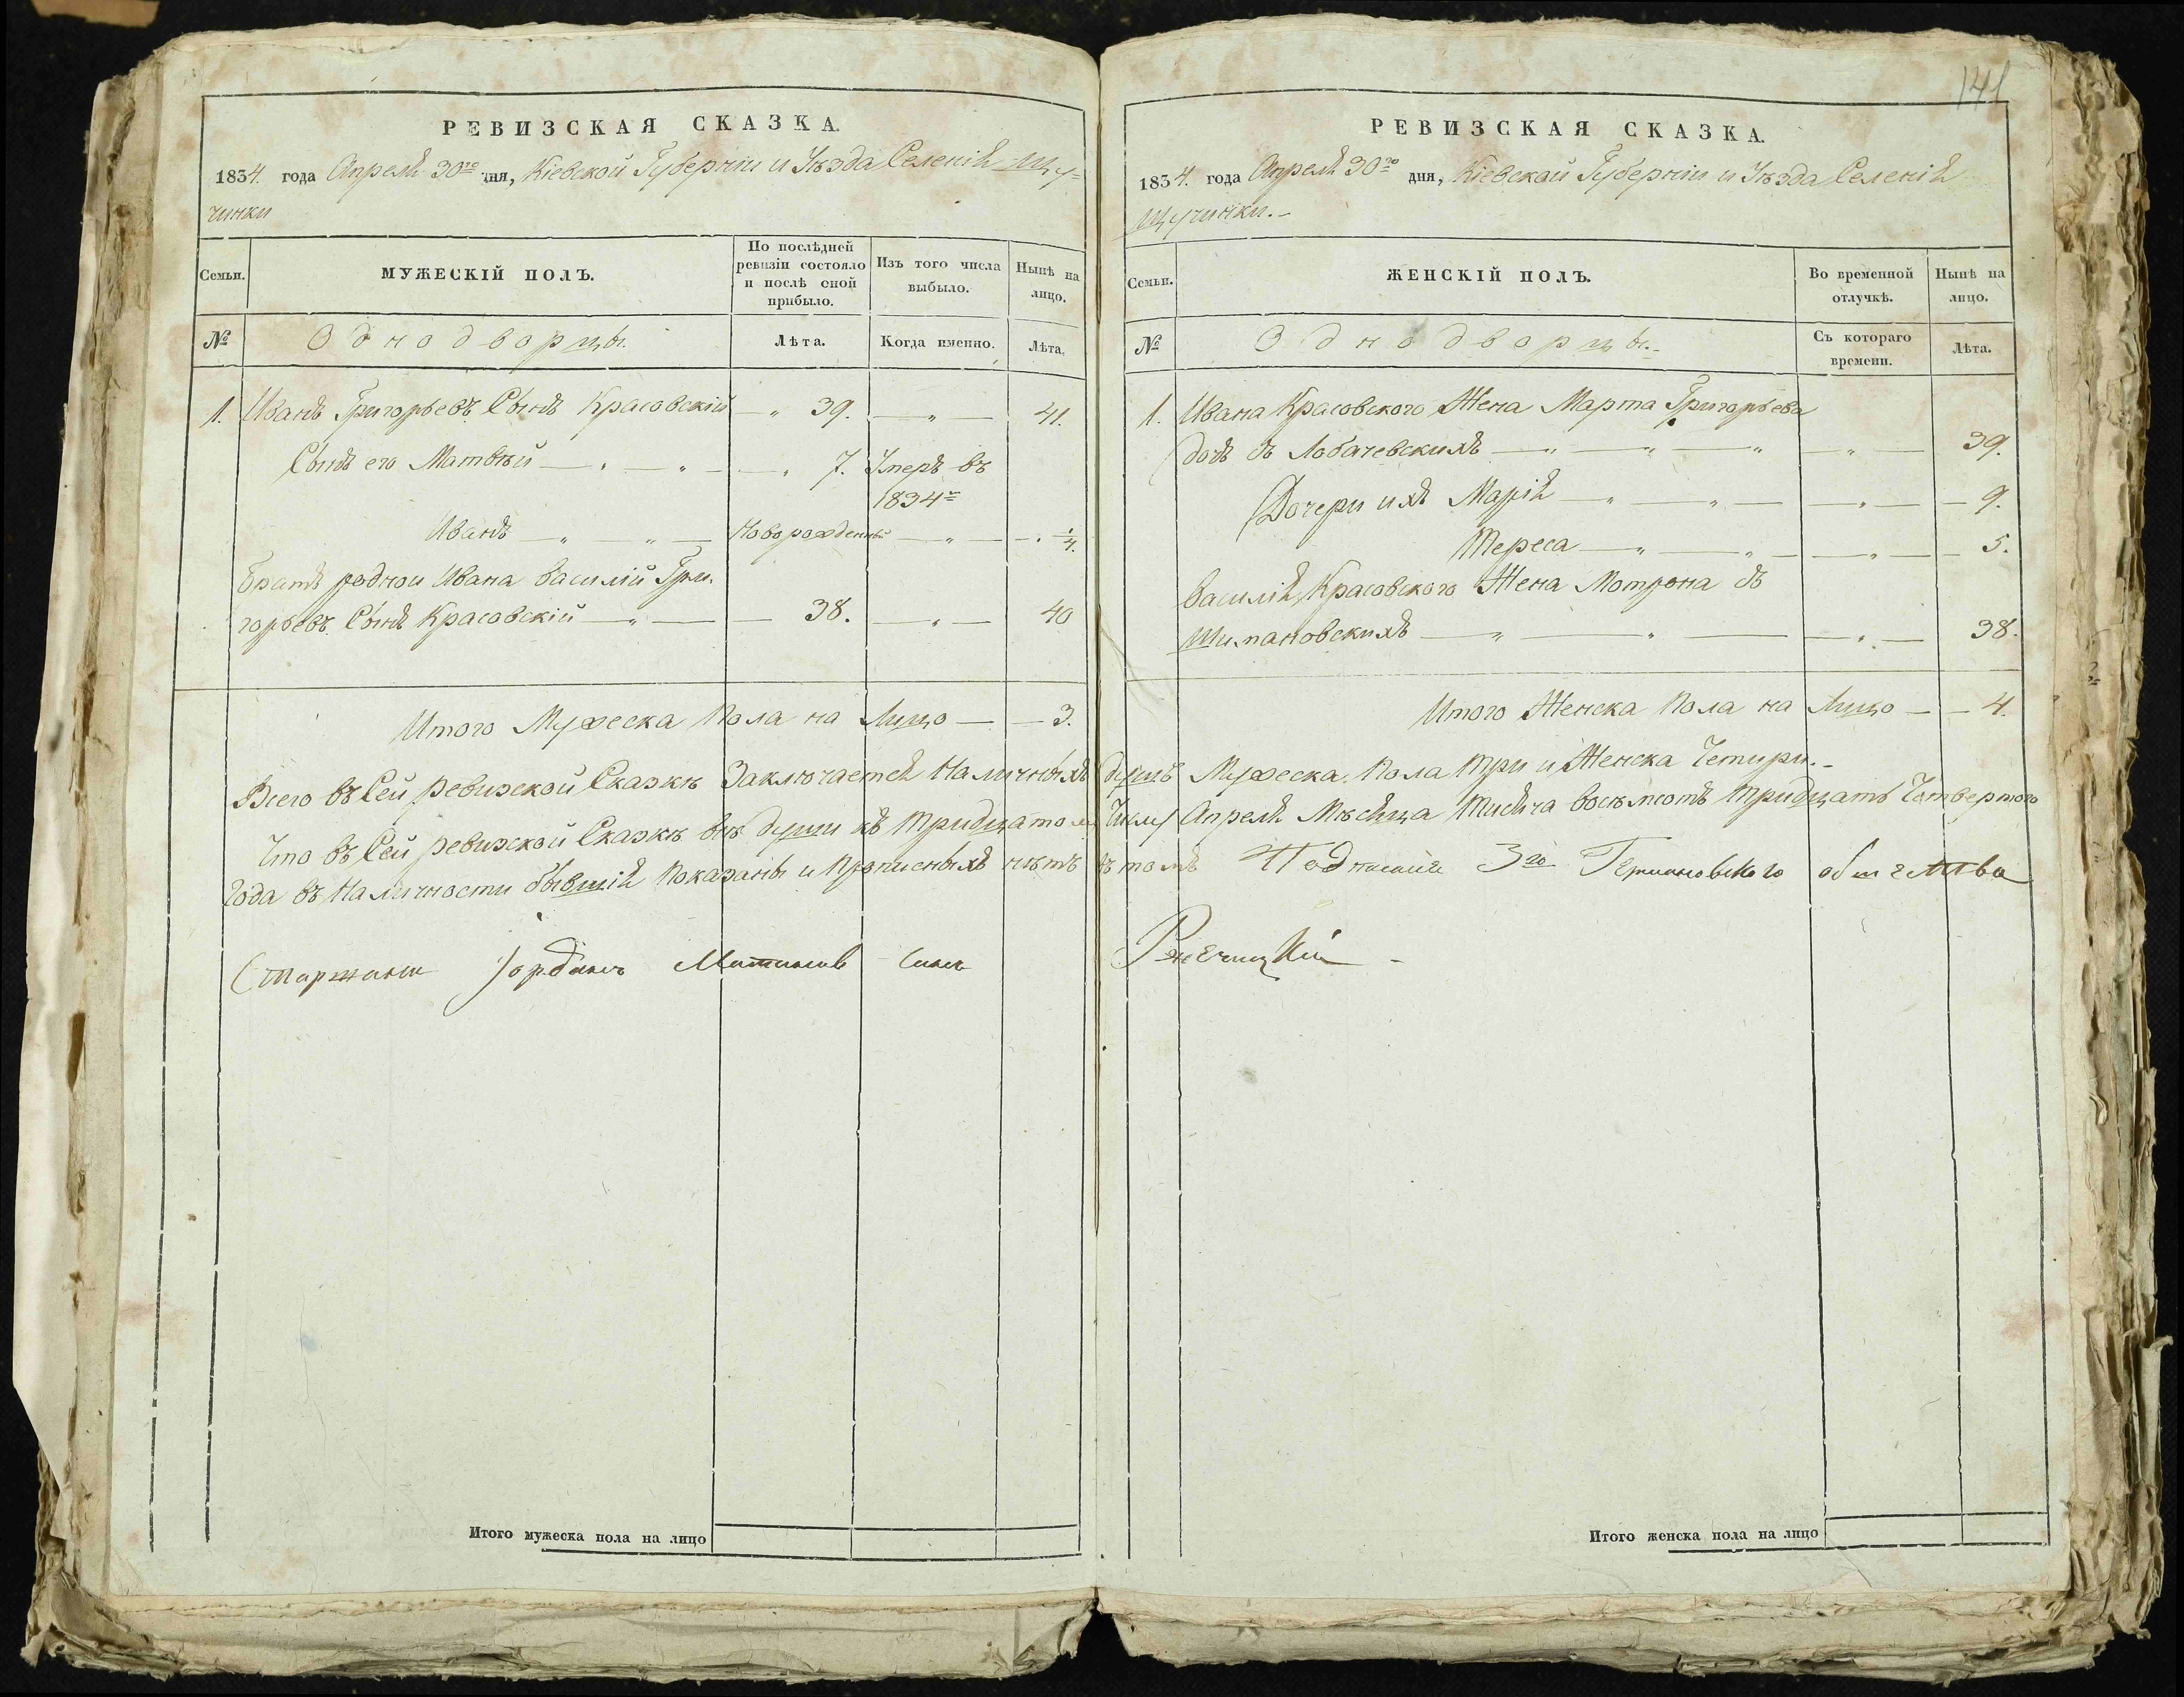 141
РЕВИЗСКАЯ СКАЗКА.
1834. года Апреля 30го дня, Кіевской Губерніи и Уѣзда Селенія Щу-
чинки
Семьи. МУЖЕСКІЙ ПОЛЪ. По послѣдней ревизіи состояло и послѣ оной прибыло. Изъ того числа выбыло. Нынѣ на лицо.
№ Однодворцы. Лѣта. Когда именно. Лѣта.
1. Иванъ Григорьевъ Сынъ Красовскій — „ 39. — „ — 41.
Сынъ его Матвѣй — „ — „ — „ 7. Умеръ въ
1834г
Иванъ — „ — „ — Новорожденный — „ — 1/4.
Братъ родной Ивана Василій Гри-
горьевъ Сынъ Красовскій — „ — — 38. — „ — 40
Итого Мужеска Пола на Лицо — — 3.
РЕВИЗСКАЯ СКАЗКА.
1834. года Апреля 30го дня, Кіевской Губерніи и Уѣзда Селенія
Щучинки. -
Семьи. ЖЕНСКІЙ ПОЛЪ. Во временной отлучкѣ. Нынѣ на лицо.
№ Однодворцы. - Съ котораго времени. Лѣта.
1. Ивана Красовского Жена Марта Григорьева
дочь зъ Лобачевскихъ — „ — „ — „ — „ — 39.
Дочери ихъ Марія — „ — „ — — „ — — 9.
Тереса — „ — „ — — „ — — 5.
Василія Красовского Жена Мотрона зъ
Шимановскихъ — „ — „ — — „ — 38.
Итого Женска Пола на Лицо — — 4.
Всего въ Сей ревизской Сказкѣ Заключается Наличныхъ душъ Мужеска Пола три и Женска Четыри. -
Что въ Сей ревизской Сказкѣ всѣ души къ тридцатому Числу Апреля Мѣсяца тисяча восѣмсотъ тридцать Четвертого
Года въ Наличности бывшія показаны и прописныхъ нѣтъ въ томъ 3го общества
Итого мужеска пола на лицо
Итого женска пола на лицо